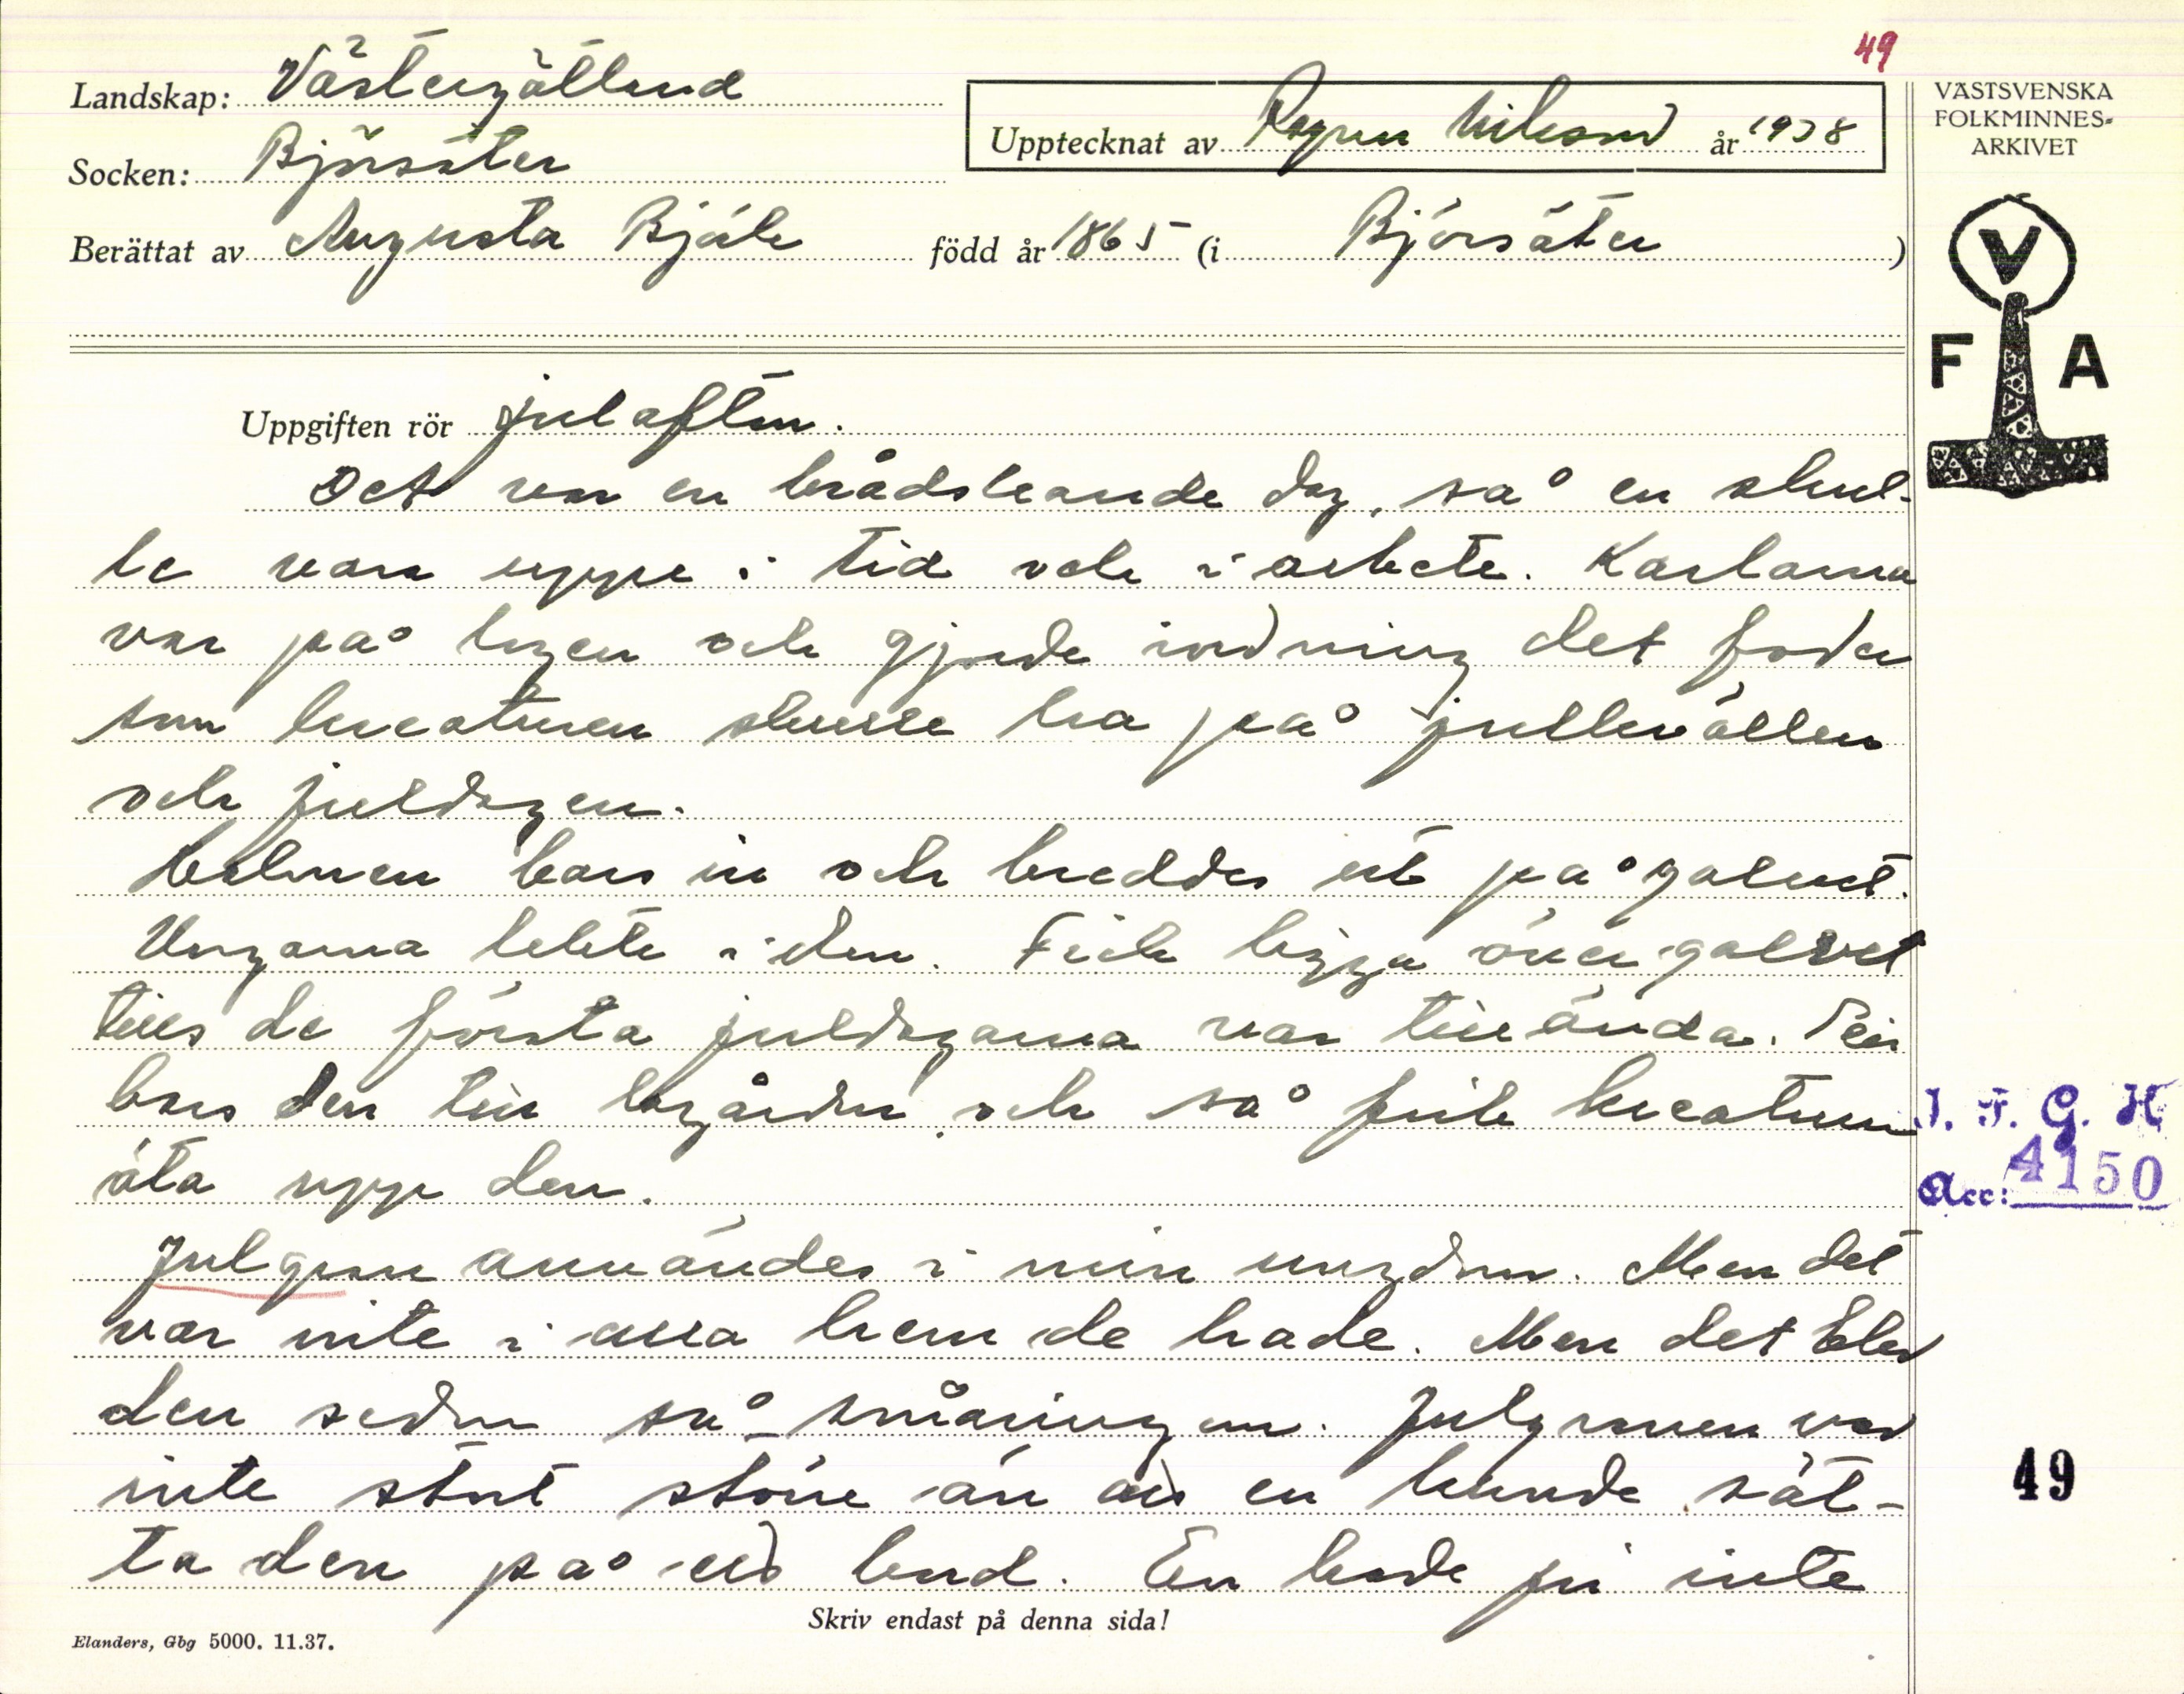 49
Landskap: Västergötland
Socken: Björsäter
Upptecknat av Ragnar Nilsson år 1938
Berättat av Augusta Bjärk född år 1865 (i Björsäter)
VÄSTSVENSKA
FOLKMINNES-
ARKIVET
V
F A
Uppgiften rör julafton.
Det var en brådskande dag, så en skul-
le vara uppe i tid och i arbete. Karlarna
var på logen och gjorde iordning det foder
som kreaturen skulle ha på julkvällen
och juldagen.
Halmen bars in och breddes ut på golvet.
Ungarna lekte i den. Fick ligga över golvet
tills de första juldagarna var till ända. Sen
bars den till lagården, och så fick kreaturen
äta upp den.
Julgran användes i min ungdom. Men det
var inte i alla hem de hade. Men det blev
den sedan så småningom. Julgranen var
inte stort större än att en kunde sät-
ta den på ett bord. En hade ju inte
I. F. G. H
Acc: 4150
49
Skriv endast på denna sida!
Elanders, Gbg 5000. 11.37.